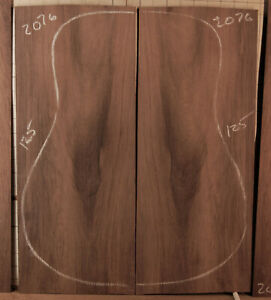 2076 2076
125 125
20